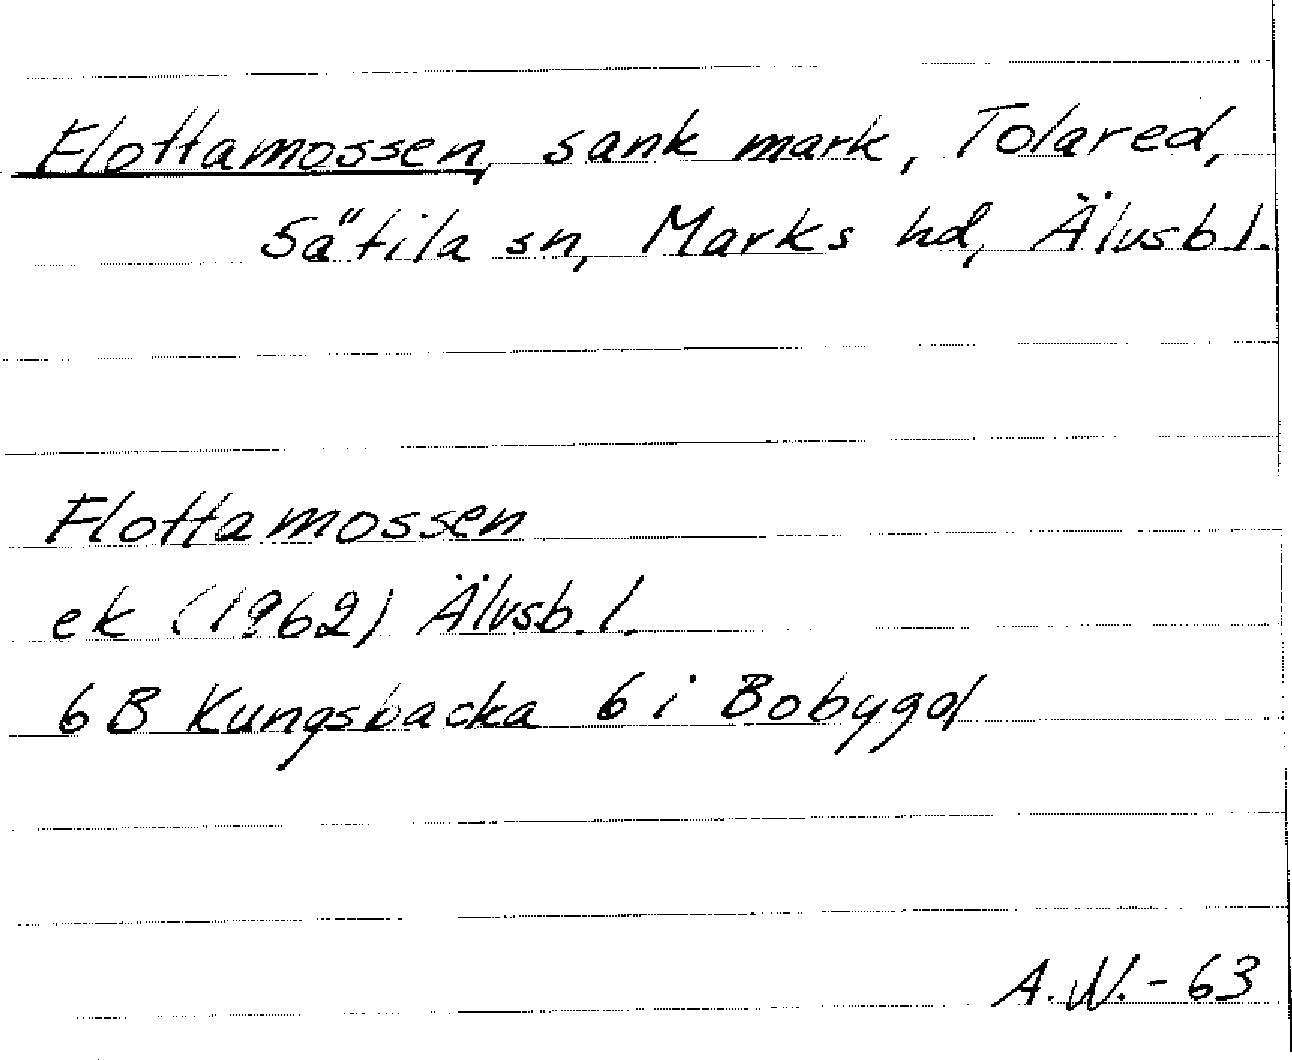 Flottamossen, sank mark, Tolared,
Sätila sn, Marks hd, Älvsb l.
Flottamossen
ek (1962) Älvsb. l.
6B Kungsbacka 6 i Bobygd
A.W.-63